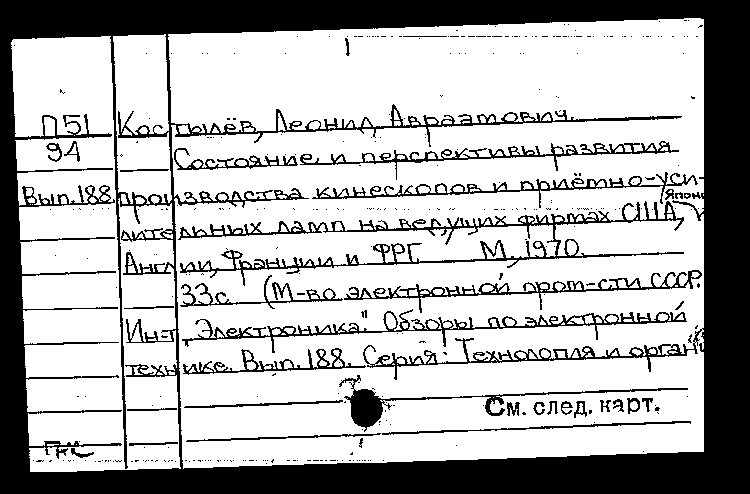 П51 Костылёв, Леонид Авраамович.
94 Состояние и перспективы развития
Вып.188. производства кинескопов и приёмно-уси-
лительных ламп на ведущих фирмах США, Япони
Англии, Франции и ФРГ М., 1970.
33с. (М-во электронной пром-сти СССР.
Ин-т „Электроника". Обзоры по электронной
технике. Вып. 188. Серия: Технология и органи
См. след. карт.